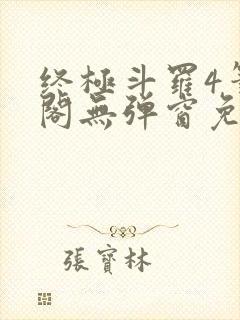 终極斗羅4
閣無弹窗免
張寶林